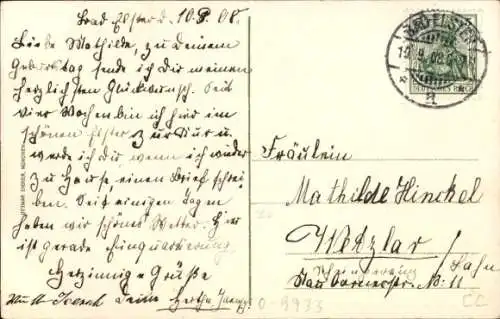 Bad Elster d. 10.8.08.
Liebe Mathilde, zu Deinem
Geburtstag sende ich Dir meinen
herzlichsten Glückwunsch. Seit
vier Wochen bin ich hier im
schönen Elster zur Kur u.
werde ich dir, wenn ich wieder
zu Hause, einen Brief schrei-
ben. Seit einigen Tagen
haben wir schönes Wetter. Hier
ist gerade Einquartierung.
Herzinnige Grüße
Deine Hertha
BAD ELSTER
10.8.08
a
DEUTSCHES REICH
Fräulein
Mathilde Hinckel
Wetzlar /
Lahn
No 11
OTTMAR ZIEHER, MÜNCHEN
0-9933
CC